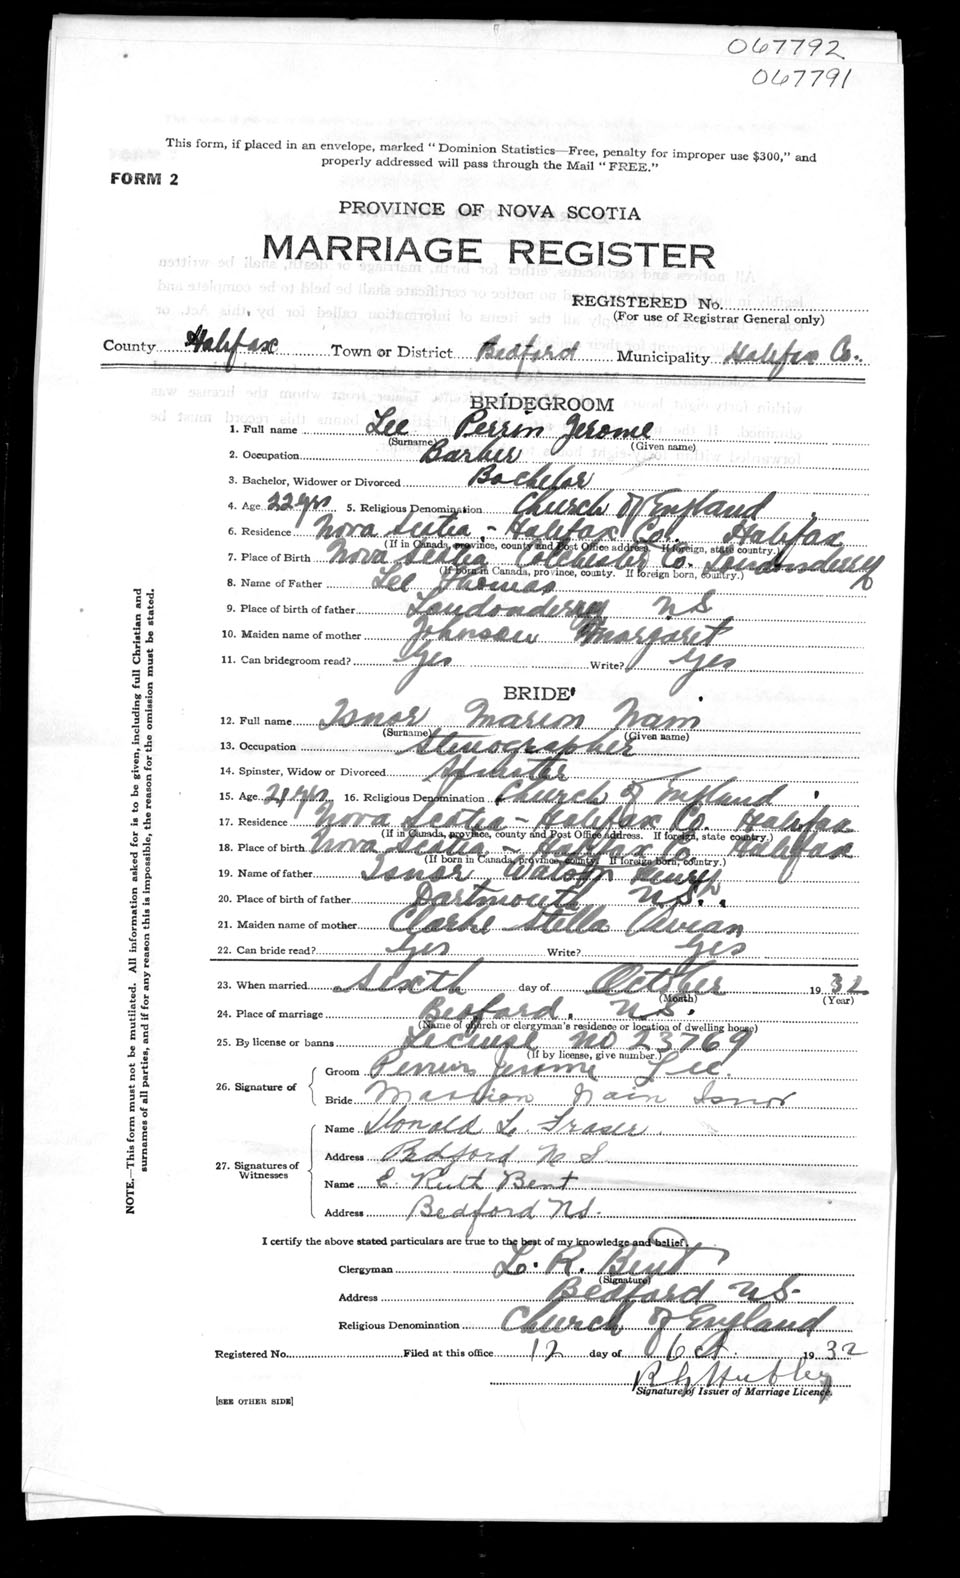 067792
067791
This form, if placed in an envelope, marked "Dominion Statistics—Free, penalty for improper use $300," and
properly addressed will pass through the Mail "FREE."
FORM 2
PROVINCE OF NOVA SCOTIA
MARRIAGE REGISTER
REGISTERED No.
(For use of Registrar General only)
County Halifax Town or District Bedford Municipality Halifax Co.
BRIDEGROOM
1. Full name Lee Perrin Jerome
(Surname) (Given name)
2. Occupation Barber
3. Bachelor, Widower or Divorced Bachelor
4. Age 22 yrs 5. Religious Denomination Church of England
6. Residence Nova Scotia - Halifax Co. Halifax
(If in Canada, province, county and Post Office address. If foreign, state country.)
7. Place of Birth Nova Scotia Colchester Co. Londonderry
(If born in Canada, province, county. If foreign born, country.)
8. Name of Father Lee Thomas
9. Place of birth of father Londonderry NS
10. Maiden name of mother Johnson Margaret
11. Can bridegroom read? Yes Write? Yes
BRIDE
12. Full name Isnor Marion Nain
(Surname) (Given name)
13. Occupation Stenographer
14. Spinster, Widow or Divorced Spinster
15. Age 21 yrs 16. Religious Denomination Church of England
17. Residence Nova Scotia - Halifax Co. Halifax
(If in Canada, province, county and Post Office Address. If foreign, state country.)
18. Place of birth Nova Scotia - Halifax Co Halifax
(If born in Canada, province, county. If foreign born, country.)
19. Name of father Isnor Watson Henry
20. Place of birth of father Dartmouth N.S.
21. Maiden name of mother Clarke Stella Vivian
22. Can bride read? Yes Write? Yes
23. When married Sixth day of October 1932
(Month) (Year)
24. Place of marriage Bedford. N.S.
(Name of church or clergyman's residence or location of dwelling house)
25. By license or banns License No 23769
(If by license, give number.)
26. Signature of
Groom Perrin Jerome Lee.
Bride Marion Nain Isnor
27. Signatures of Witnesses
Name Donald L. Fraser
Address Bedford N S
Name E. Ruth Bent
Address Bedford NS.
I certify the above stated particulars are true to the best of my knowledge and belief.
Clergyman L. R. Bent
(Signature)
Address Bedford NS-
Religious Denomination Church of England
Registered No. Filed at this office 12 day of Oct. 1932
R G Hubley
Signature of Issuer of Marriage Licence.
[SEE OTHER SIDE]
NOTE.—This form must not be mutilated. All information asked for is to be given, including full Christian and
surnames of all parties, and if for any reason this is impossible, the reason for the omission must be stated.